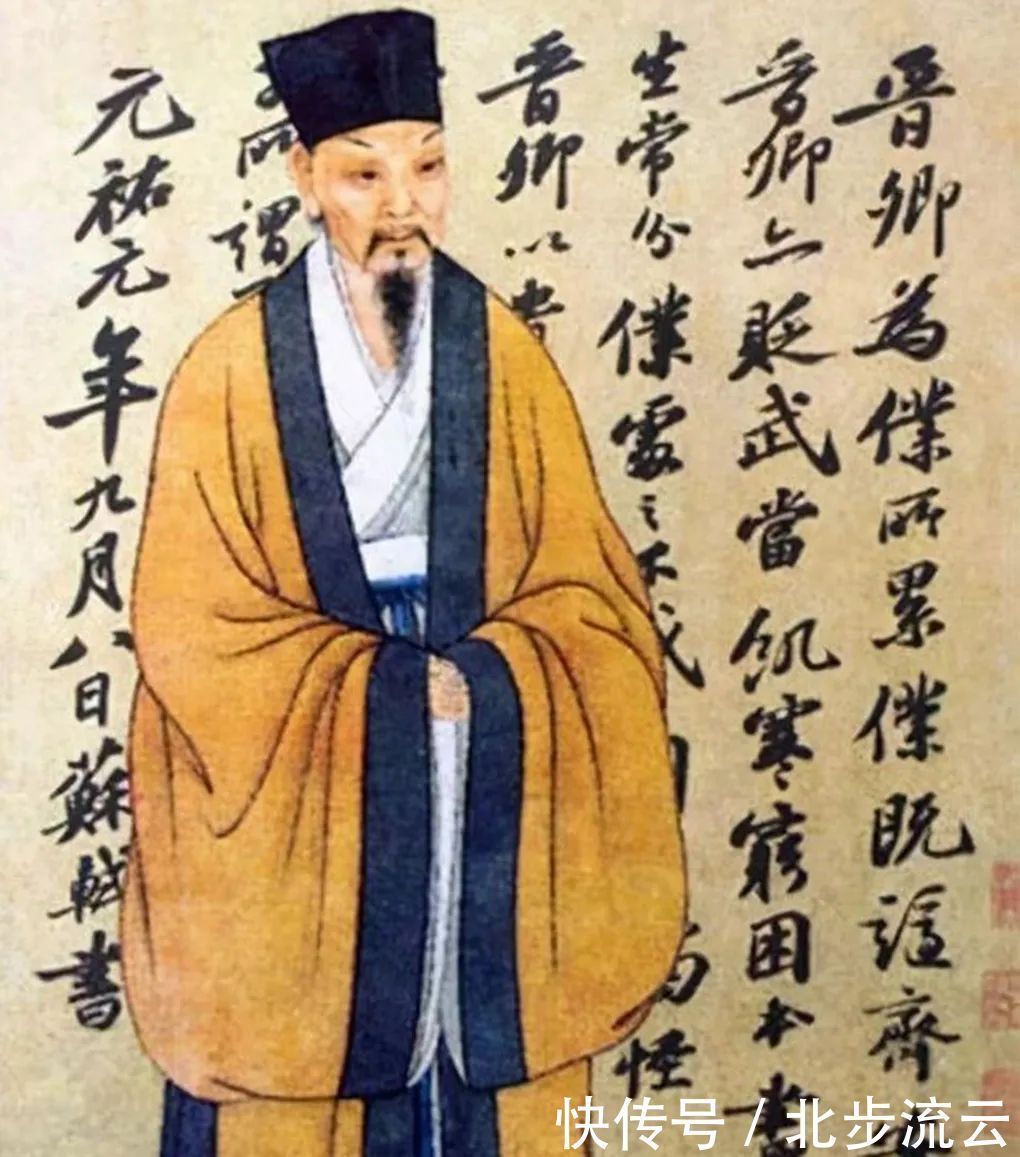 晉卿為僕所累僕既謫齊
晉卿亦貶武當飢寒窮困本書
生常分僕處之不戚 怪
晉卿以貴
所謂
元祐元年九月八日蘇軾書
快传号 / 北步流云